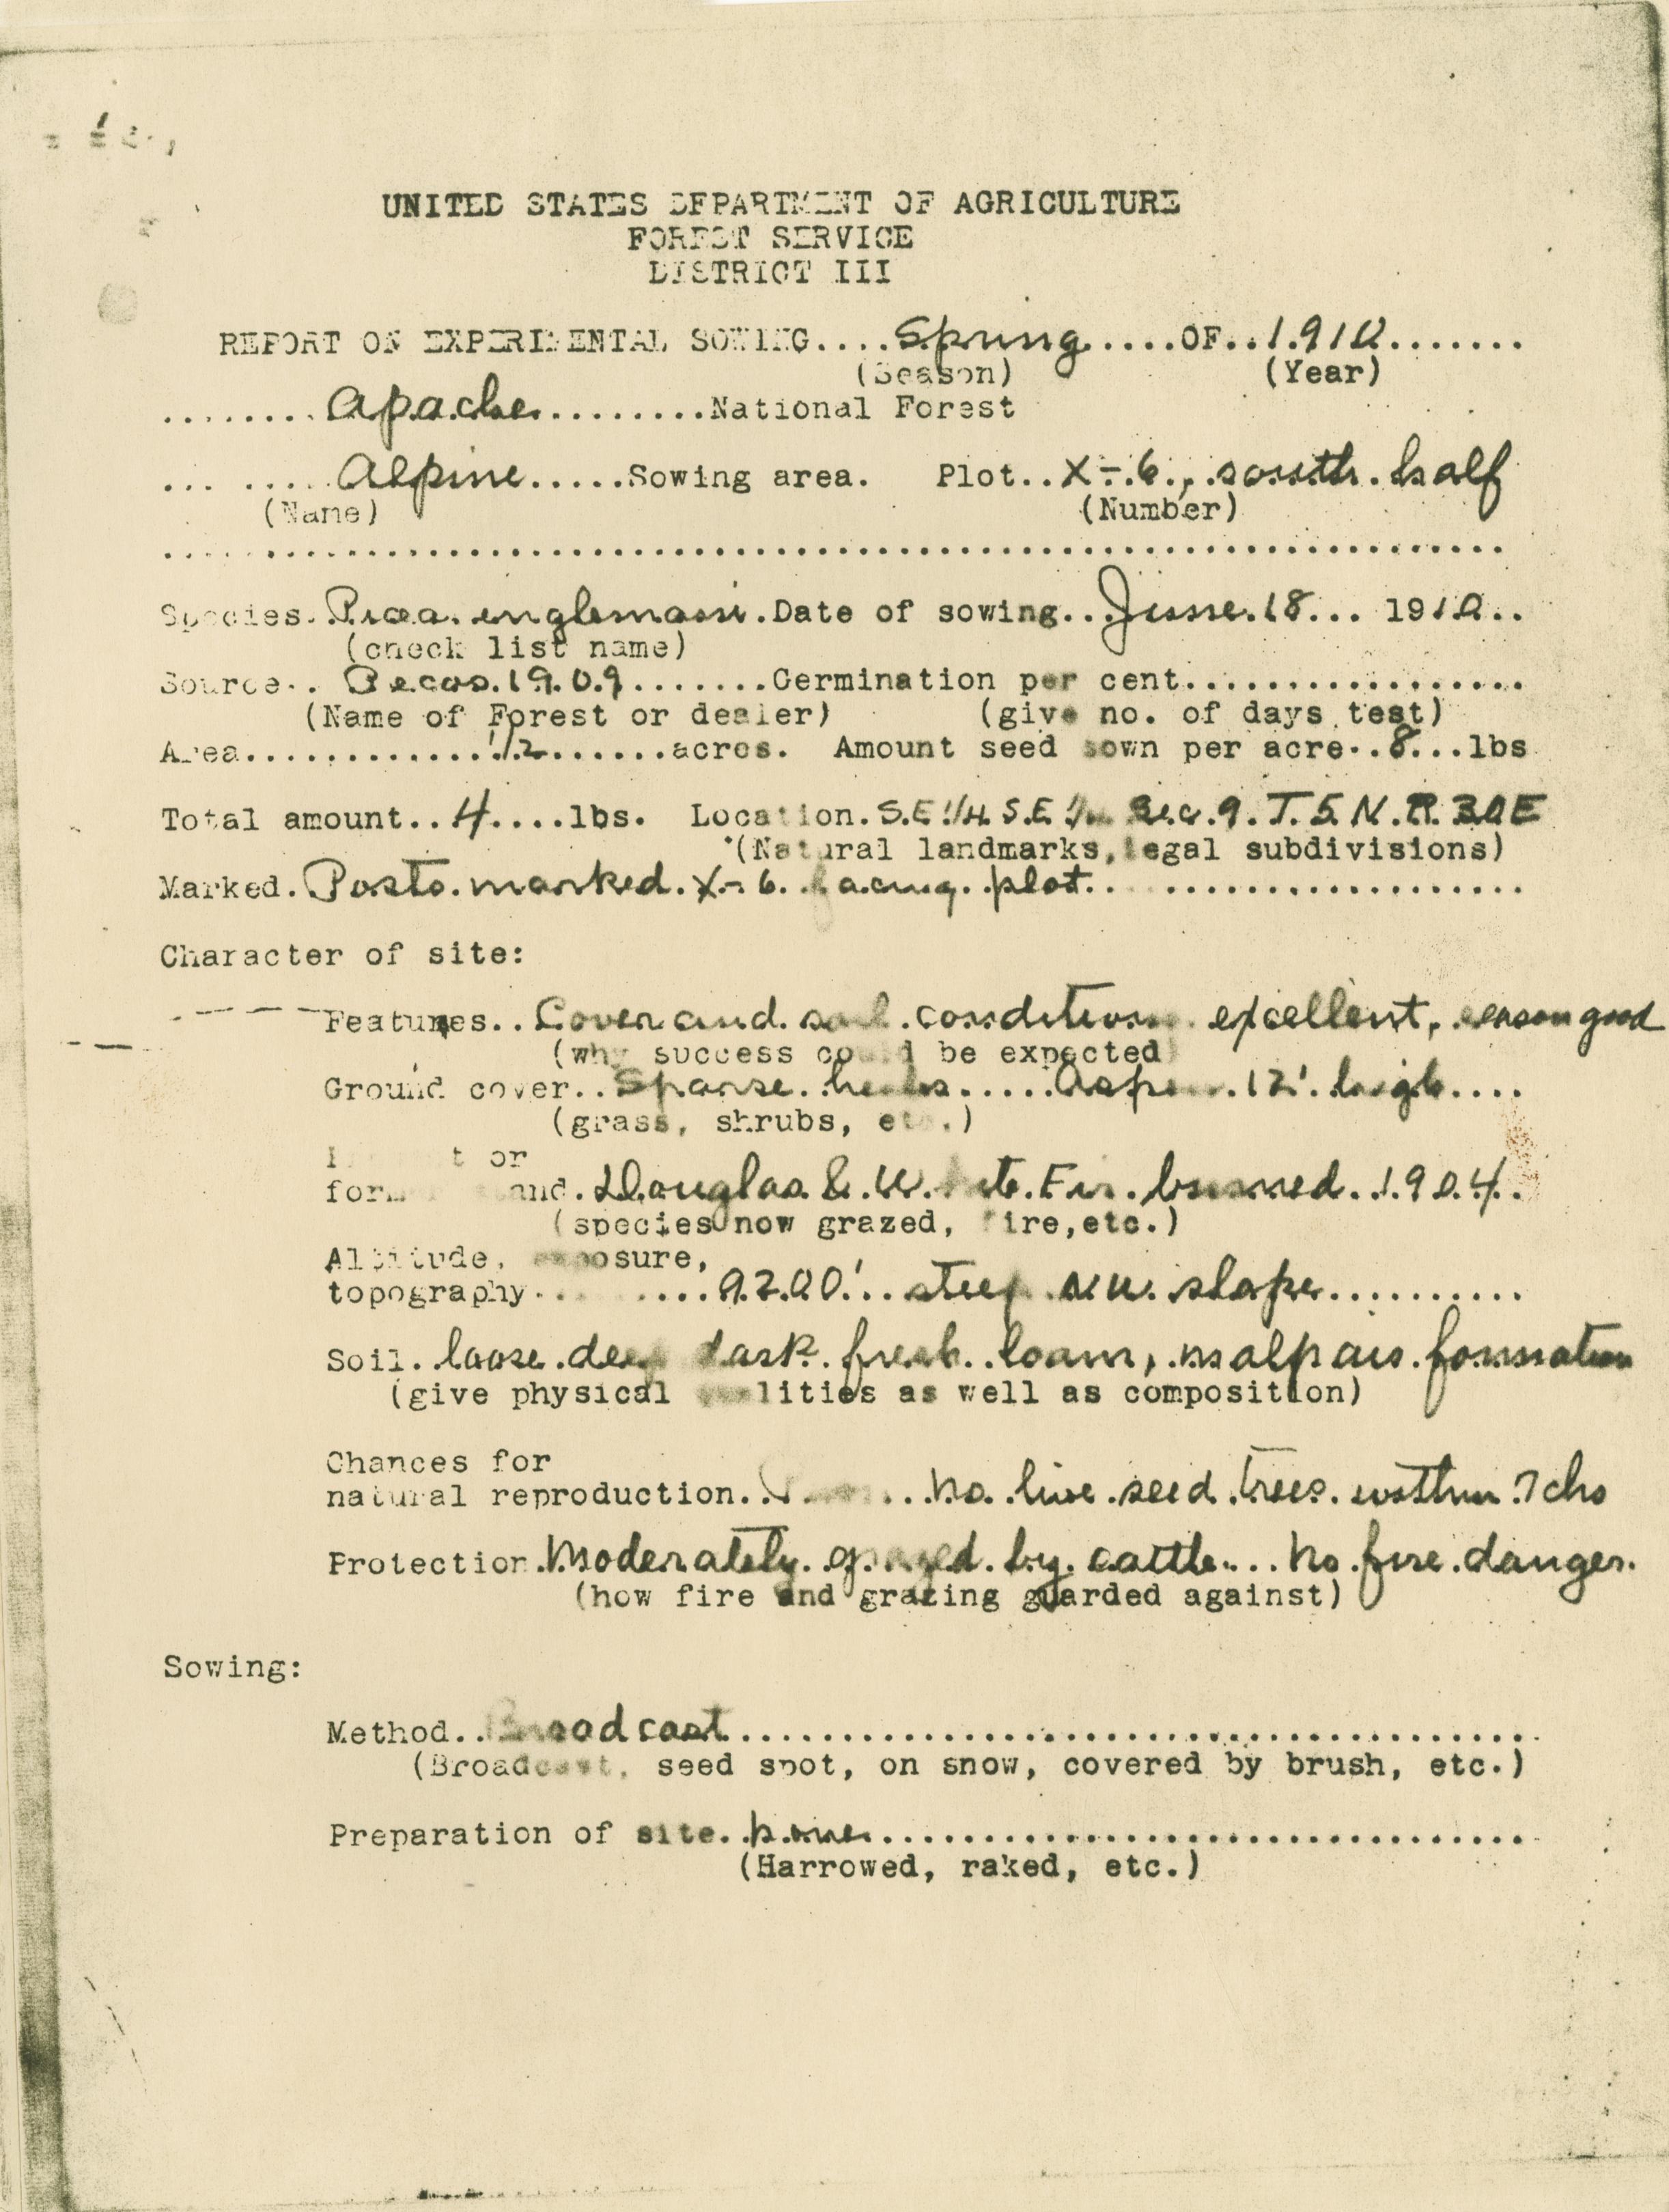 UNITED STATES DEPARTMENT OF AGRICULTURE
FOREST SERVICE
DISTRICT III
REPORT ON EXPERIMENTAL SOWING....Spring....OF..1910.......
(Season) (Year)
........Apache.........National Forest
... .....Alpine.....Sowing area. Plot..X-6., south half
(Name) (Number)
Species.Picea englemani.Date of sowing..June.18... 1910..
(check list name)
Source.. Pecos.1909.......Germination per cent.................
(Name of Forest or dealer) (give no. of days test)
Area.............1/2.......acres. Amount seed sown per acre..8...lbs
Total amount..4....lbs. Location.S.E 1/4 S.E 1/4 Sec.9.T.5 N.R.30E
(Natural landmarks,legal subdivisions)
Marked.Posts marked.X-6.facing plot......................
Character of site:
Features..Cover and soil conditions excellent, season good
(why success could be expected)
Ground cover..Sparse herbs.....Aspen 12' high....
(grass, shrubs, etc.)
or
and.Douglas & White Fir burned.1904.
(species now grazed, fire,etc.)
Altitude, exposure,
topography... ....9200'..steep NW. slope..........
Soil.loose deep dark fresh loam, malpais formation
(give physical qualities as well as composition)
Chances for
natural reproduction.. ...No live seed trees within 7 chs
Protection.Moderately grazed by cattle...No fire danger.
(how fire and grazing guarded against)
Sowing:
Method..Broadcast........................................
(Broadcast, seed spot, on snow, covered by brush, etc.)
Preparation of site..none................................
(Harrowed, raked, etc.)